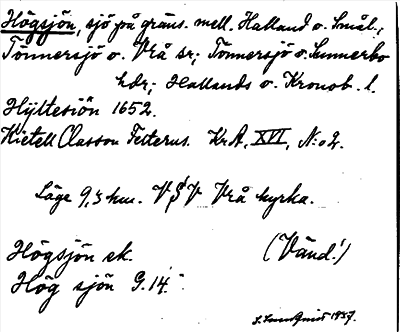 Högsjön, sjö på gräns. mell. Halland o. Smål.,
Tönnersjö o. Vrå sr; Tönnersjö o. Sunnerbo
hdr; Hallands o. Kronob. l.
Hyltesiön 1652.
Kietell Classon Felterus. KrA, XVI, N:o 2.
Läge 9,3 km. VSV Vrå kyrka.
Högsjön ek. (Vänd!)
Hög sjön G. 14.
1937.